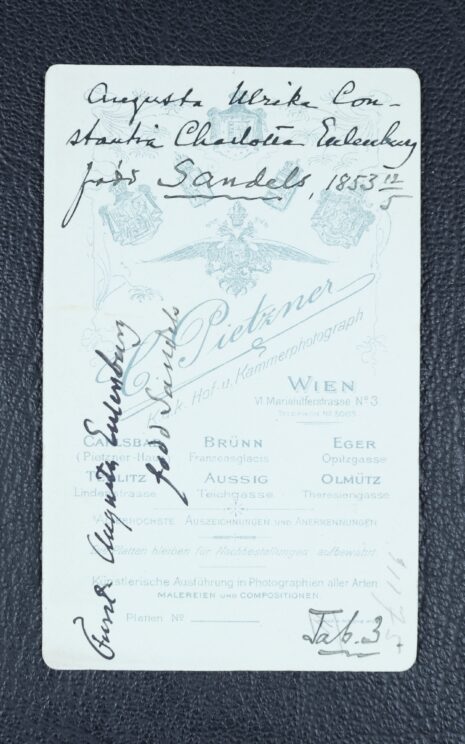 Augusta Ulrika Con-
stantia Charlotta Eulenburg
född Sandels, 1853 12/5
C. Pietzner
K. k. Hof- u. Kammerphotograph
WIEN
VI. Mariahilferstrasse No 3
TELEPHON No 5063
CARLSBAD
(Pietzner-Haus)
BRÜNN
Franzensglacis
EGER
Opitzgasse
TEPLITZ
Lindenstrasse
AUSSIG
Teichgasse
OLMÜTZ
Theresiengasse
ALLERHÖCHSTE AUSZEICHNUNGEN UND ANERKENNUNGEN
Die Platten bleiben für Nachbestellungen aufbewahrt.
Künstlerische Ausführung in Photographien aller Arten
MALEREIEN UND COMPOSITIONEN.
Platten No
Augusta Eulenburg
född Sandels
Tab. 3